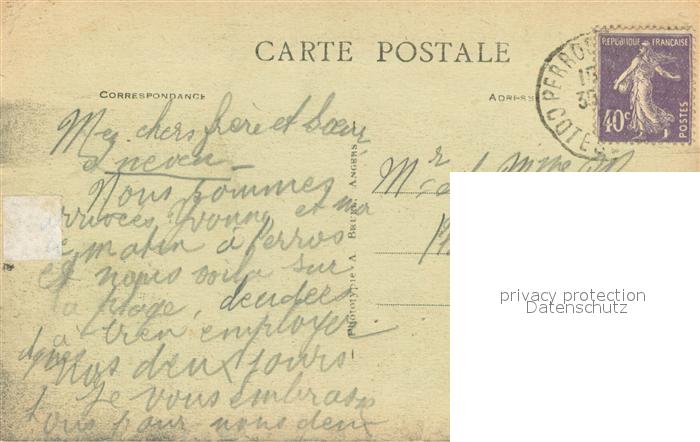 CARTE POSTALE
CORRESPONDANCE
ADRESSE
RÉPUBLIQUE FRANÇAISE
40c
POSTES
PERROS
COTES
Mes chers frère et Soeur
et neveu
Nous sommes
arrivées Yvonne et moi
ce matin à Perros
et nous voilà sur
la plage, décidées
à bien employer
nos deux jours
Je vous embrasse
tous pour nous deux
Mr et Mme
Phototypie A. Bruel, Angers
privacy protection
Datenschutz